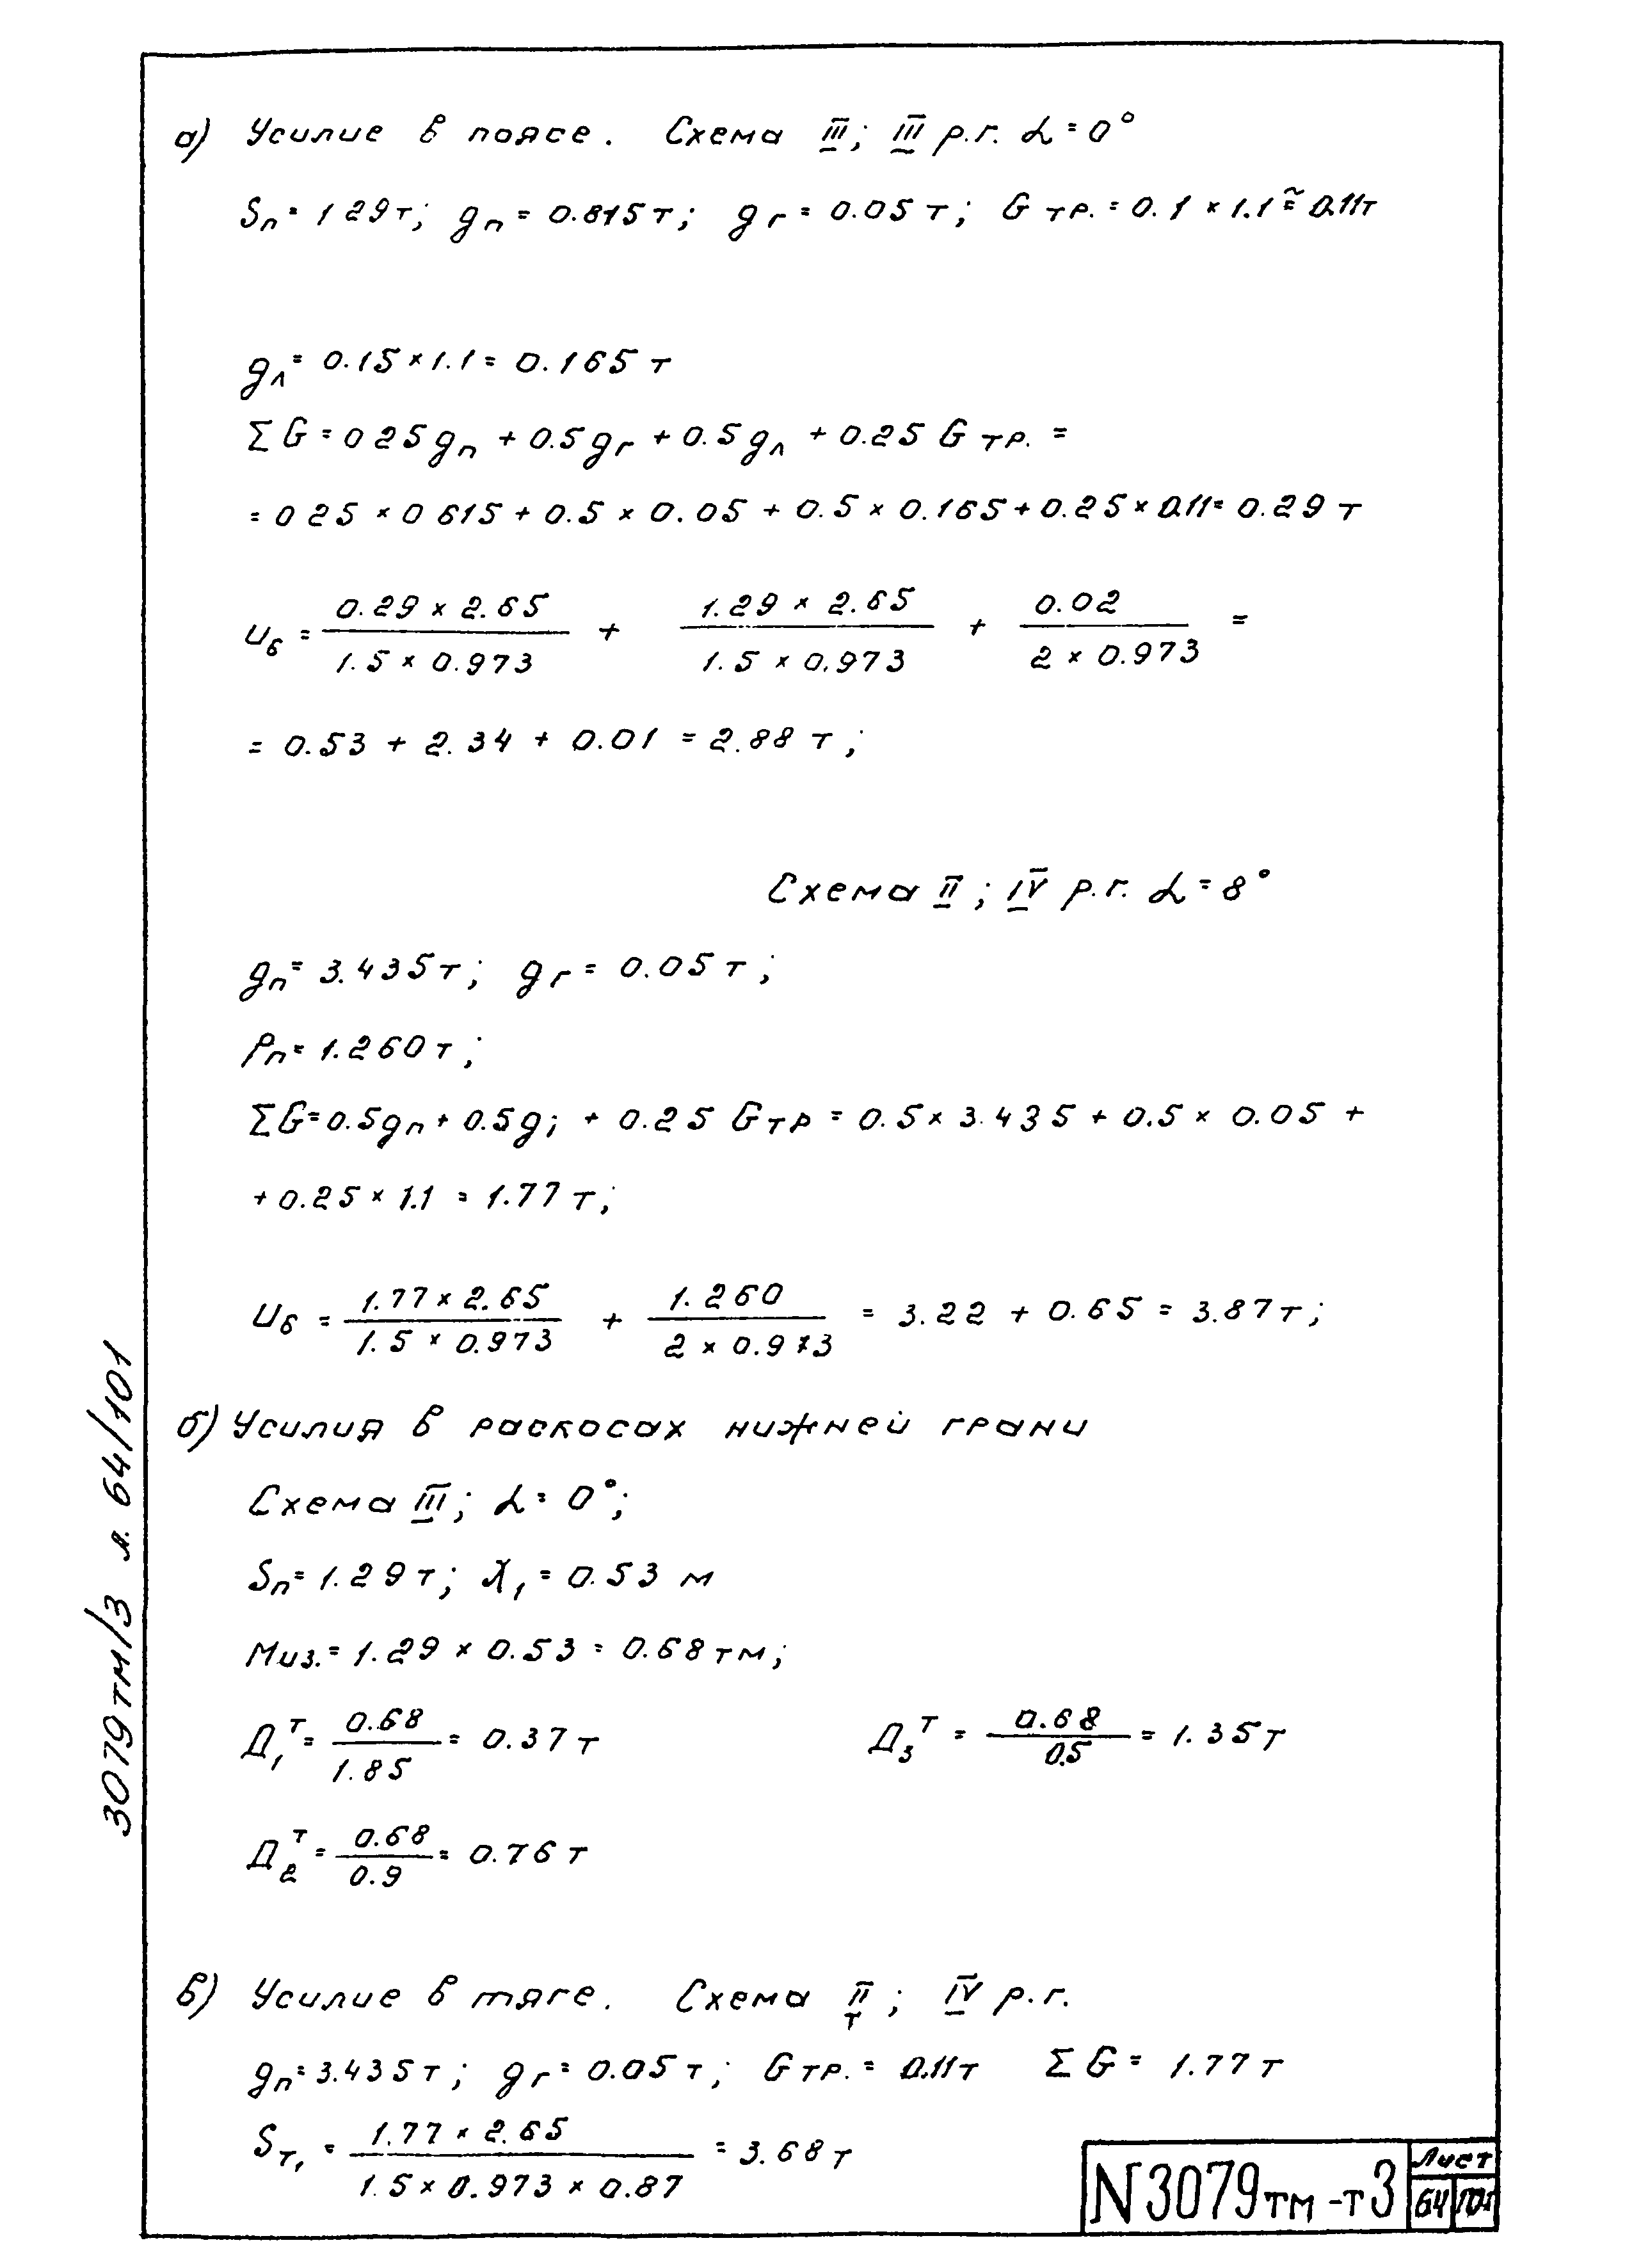 а) Усилие в поясе. Схема III; III р.г. α = 0°
Sп = 1 29т; gп = 0.815т; gг = 0.05 т; G тр. = 0.1 × 1.1 ≅ 0.11т
gл = 0.15 × 1.1 = 0.165 т
ΣG = 0 25gп + 0.5gг + 0.5gл + 0.25 G тр. =
= 0 25 × 0 615 + 0.5 × 0.05 + 0.5 × 0.165 + 0.25 × 0.11 = 0.29 т
Uб = (0.29 × 2.65)/(1.5 × 0.973) + (1.29 × 2.65)/(1.5 × 0.973) + 0.02/(2 × 0.973) =
= 0.53 + 2.34 + 0.01 = 2.88 т;
Схема II; IV р.г. α = 8°
gп = 3.435т; gг = 0.05 т;
Pп = 1.260 т;
ΣG = 0.5gп + 0.5gi + 0.25 Gтр = 0.5 × 3.435 + 0.5 × 0.05 +
+ 0.25 × 1.1 = 1.77 т;
Uб = (1.77 × 2.65)/(1.5 × 0.973) + 1.260/(2 × 0.973) = 3.22 + 0.65 = 3.87т;
б) Усилия в раскосах нижней грани
Схема III; α = 0°;
Sп = 1.29т; X1 = 0.53 м
Mиз. = 1.29 × 0.53 = 0.68 тм;
Д1т = 0.68/1.85 = 0.37 т Д3т = 0.68/0.5 = 1.35т
Д2т = 0.68/0.9 = 0.76 т
в) Усилие в тяге. Схема IIт; IV р.г.
gп = 3.435т; gг = 0.05т; G тр. = 0.11т ΣG = 1.77 т
Sт1 = (1.77 × 2.65)/(1.5 × 0.973 × 0.87) = 3.68т
N 3079тм-т3
Лист
64 101
3079тм/3 л. 64/101